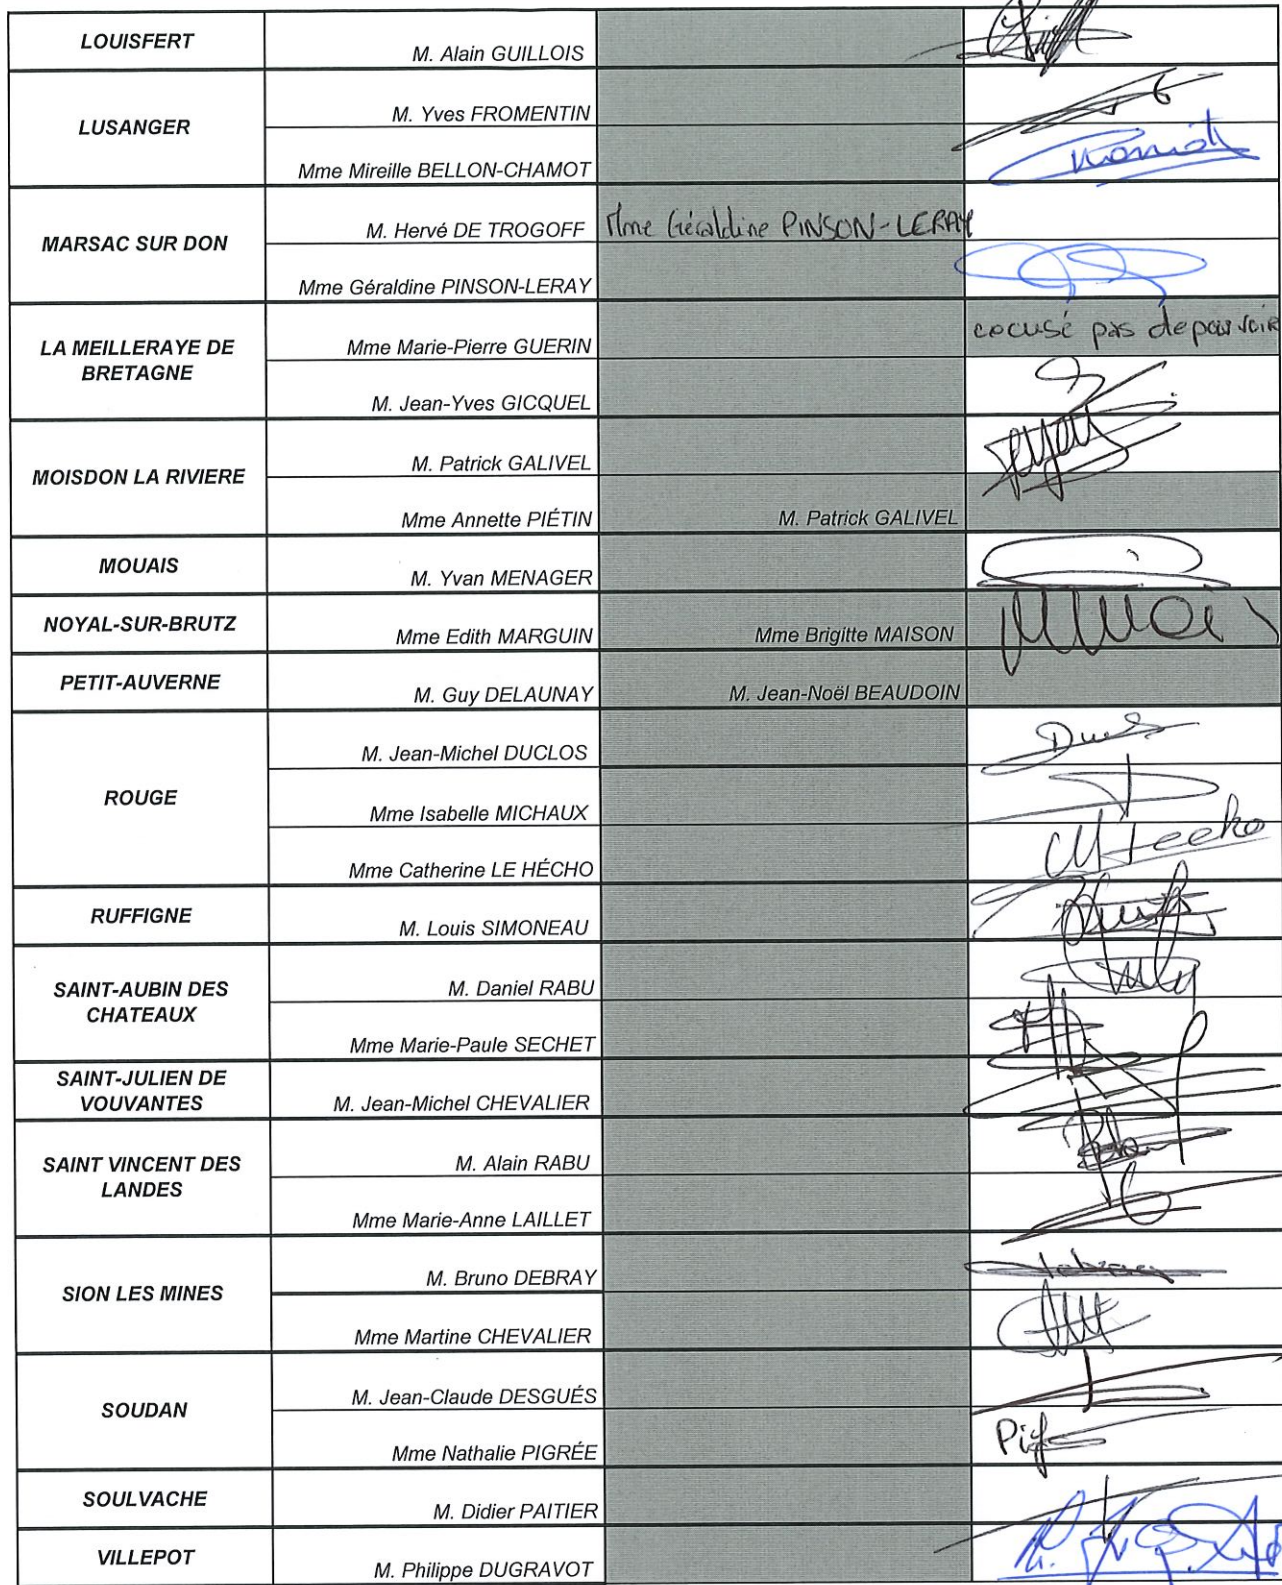 LOUISFERT
M. Alain GUILLOIS
LUSANGER
M. Yves FROMENTIN
Mme Mireille BELLON-CHAMOT
MARSAC SUR DON
M. Hervé DE TROGOFF
Mme Géraldine PINSON-LERAY
Mme Géraldine PINSON-LERAY
LA MEILLERAYE DE
BRETAGNE
Mme Marie-Pierre GUERIN
excusé pas de pouvoir
M. Jean-Yves GICQUEL
MOISDON LA RIVIERE
M. Patrick GALIVEL
Mme Annette PIÉTIN
M. Patrick GALIVEL
MOUAIS
M. Yvan MENAGER
NOYAL-SUR-BRUTZ
Mme Edith MARGUIN
Mme Brigitte MAISON
PETIT-AUVERNE
M. Guy DELAUNAY
M. Jean-Noël BEAUDOIN
ROUGE
M. Jean-Michel DUCLOS
Mme Isabelle MICHAUX
Mme Catherine LE HÉCHO
RUFFIGNE
M. Louis SIMONEAU
SAINT-AUBIN DES
CHATEAUX
M. Daniel RABU
Mme Marie-Paule SECHET
SAINT-JULIEN DE
VOUVANTES
M. Jean-Michel CHEVALIER
SAINT VINCENT DES
LANDES
M. Alain RABU
Mme Marie-Anne LAILLET
SION LES MINES
M. Bruno DEBRAY
Mme Martine CHEVALIER
SOUDAN
M. Jean-Claude DESGUÉS
Mme Nathalie PIGRÉE
SOULVACHE
M. Didier PAITIER
VILLEPOT
M. Philippe DUGRAVOT